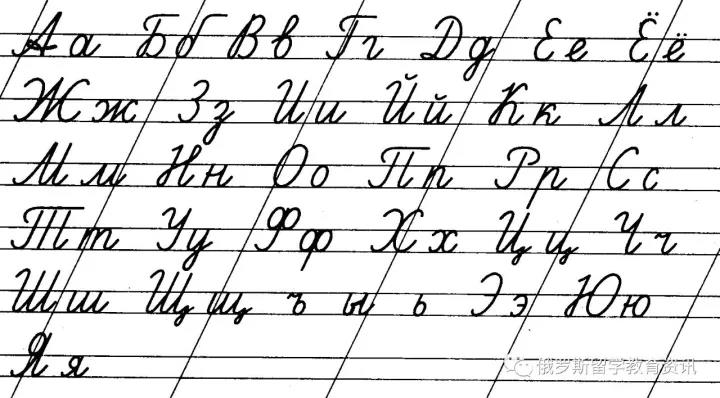 Аа Бб Вв Гг Дд Ее Ёё
Жж Зз Ии Йй Кк Лл
Мм Нн Оо Пп Рр Сс
Тт Уу Фф Хх Цц Чч
Шш Щщ ъ ы ь Ээ Юю
Яя
俄罗斯留学教育资讯